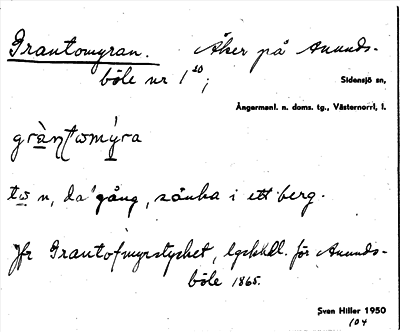 Grantomyran. Åker på Anunds-
böle nr 1²⁰;
Sidensjö sn,
Ångermanl. n. doms. tg., Västernorrl. l.
gràntωmýra
tω n, da' gång, sänka i ett berg.
Jfr Grantofmyrstycket, lgskhdl. för Anunds-
böle 1865.
Sven Hiller 1950
104